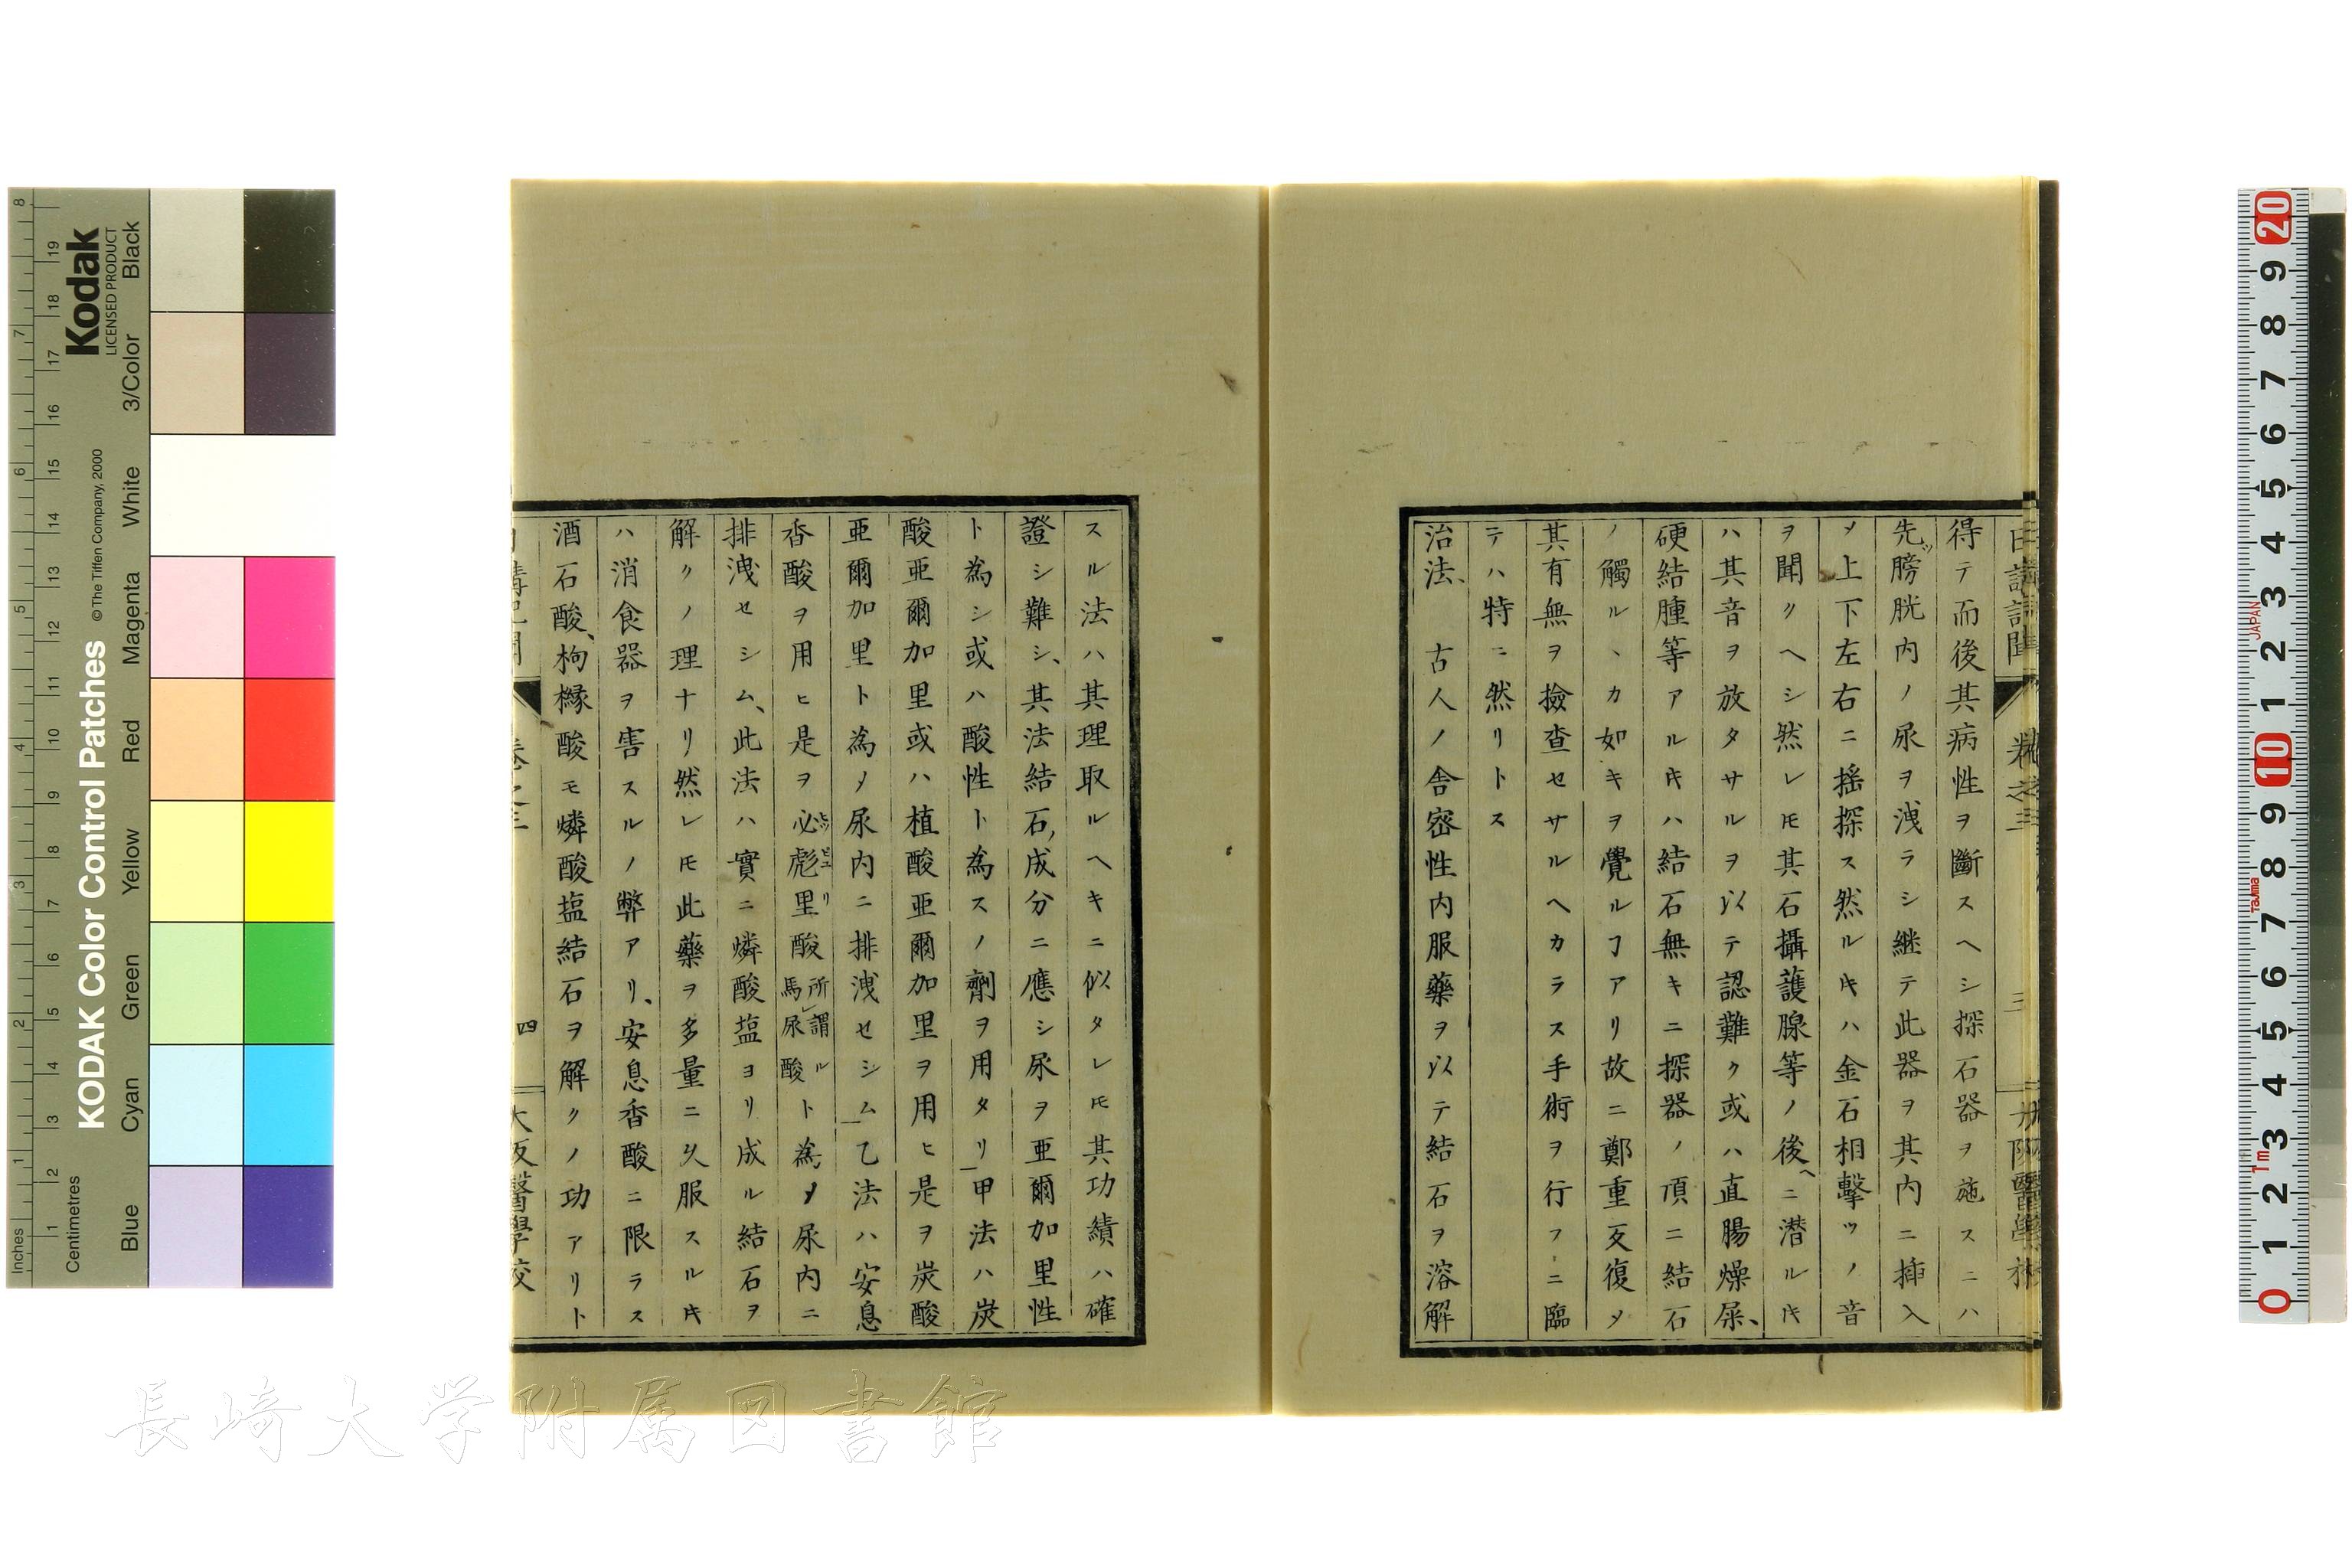 日講記聞 卷之三 三 大阪醫學校
得テ而後其病性ヲ斷スヘシ探石器ヲ施スニハ
先ツ膀胱内ノ尿ヲ洩ラシ継テ此器ヲ其内ニ挿入
メ上下左右ニ揺探ス然ルキハ金石相擊ツノ音
ヲ聞クヘシ然レ𪜈其石攝護腺等ノ後ヘニ潜ルキ
ハ其音ヲ放タサルヲ以テ認難ク或ハ直腸燥屎、
硬結腫等アルキハ結石無キニ探器ノ頂ニ結石
ノ觸ルヽカ如キヲ覺ルヿアリ故ニ鄭重反復メ
其有無ヲ撿查セサルヘカラス手術ヲ行フニ臨
テハ特ニ然リトス
治法、 古人ノ舎密性内服藥ヲ以テ結石ヲ溶解
スル法ハ其理取ルヘキニ似タレ𪜈其功績ハ確
證シ難シ、其法結石ノ成分ニ應シ尿ヲ亜爾加里性
ト為シ或ハ酸性ト為スノ劑ヲ用タリ甲法ハ炭
酸亜爾加里或ハ植酸亜爾加里ヲ用ヒ是ヲ炭酸
亜爾加里ト為メ尿内ニ排洩セシム乙法ハ安息
香酸ヲ用ヒ是ヲ必彪里酸所謂ル馬尿酸ト為メ尿内ニ
排洩セシム、此法ハ實ニ燐酸塩ヨリ成ル結石ヲ
解クノ理ナリ然レ𪜈此藥ヲ多量ニ久服スルキ
ハ消食器ヲ害スルノ弊アリ、安息香酸ニ限ラス
酒石酸、枸櫞酸モ燐酸塩結石ヲ解クノ功アリト
日講記聞 卷之三 四 大阪醫學校
KODAK Color Control Patches
©The Tiffen Company, 2000
Kodak
LICENSED PRODUCT
Blue Cyan Green Yellow Red Magenta White 3/Color Black
Inches 1 2 3 4 5 6 7 8
Centimetres 1 2 3 4 5 6 7 8 9 10 11 12 13 14 15 16 17 18 19
0 1 2 3 4 5 6 7 8 9 10 1 2 3 4 5 6 7 8 9 20
1m
Tajima
JAPAN
長崎大学附属図書館